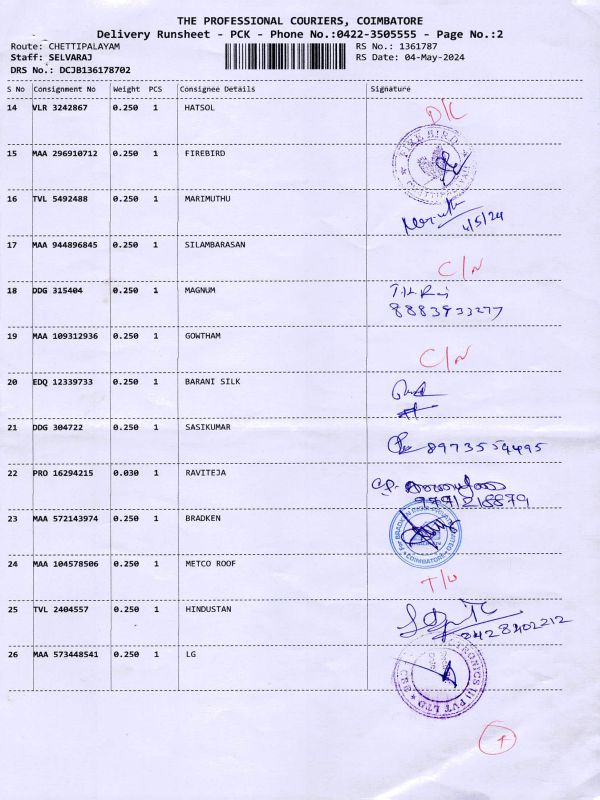 THE PROFESSIONAL COURIERS, COIMBATORE
Delivery Runsheet - PCK - Phone No.:0422-3505555 - Page No.:2
Route: CHETTIPALAYAM RS No.: 1361787
Staff: SELVARAJ RS Date: 04-May-2024
DRS No.: DCJB136178702
S No Consignment No Weight PCS Consignee Details Signature
14 VLR 3242867 0.250 1 HATSOL D/L
15 MAA 296910712 0.250 1 FIREBIRD
FIRE BIRD
16 TVL 5492488 0.250 1 MARIMUTHU
4/5/24
17 MAA 944896845 0.250 1 SILAMBARASAN
C/N
18 DDG 315404 0.250 1 MAGNUM
8883933277
19 MAA 109312936 0.250 1 GOWTHAM
C/N
20 EDQ 12339733 0.250 1 BARANI SILK
21 DDG 304722 0.250 1 SASIKUMAR
8973554495
22 PRO 16294215 0.030 1 RAVITEJA
23 MAA 572143974 0.250 1 BRADKEN
COIMBATORE
24 MAA 104578506 0.250 1 METCO ROOF
25 TVL 2404557 0.250 1 HINDUSTAN
26 MAA 573448541 0.250 1 LG
PVT LTD